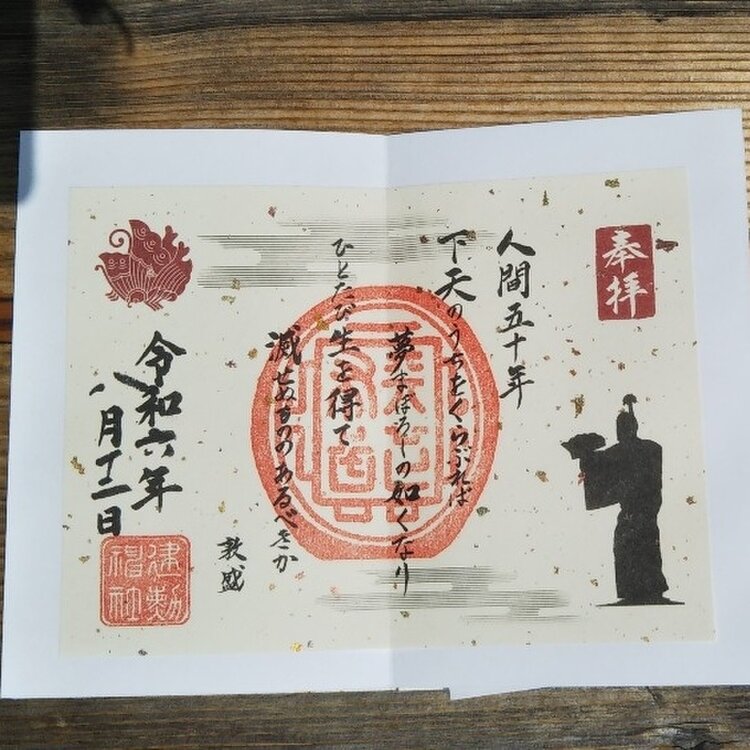 奉拝
人間五十年
下天のうちをくらぶれば
夢まぼろしの如くなり
ひとたび生を得て
滅せぬもののあるべきか
敦盛
令和六年
八月十二日
建勲
神社